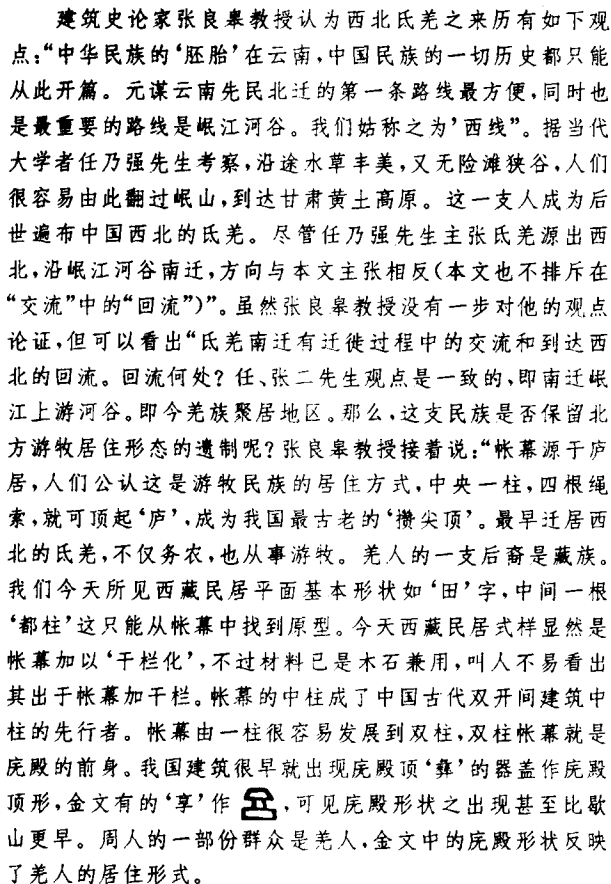 建筑史论家张良皋教授认为西北氐羌之来历有如下观
点:“中华民族的‘胚胎’在云南,中国民族的一切历史都只能
从此开篇。元谋云南先民北迁的第一条路线最方便,同时也
是最重要的路线是岷江河谷。我们姑称之为’西线”。据当代
大学者任乃强先生考察,沿途水草丰美,又无险滩狭谷,人们
很容易由此翻过岷山,到达甘肃黄土高原。这一支人成为后
世遍布中国西北的氐羌。尽管任乃强先生主张氐羌源出西
北,沿岷江河谷南迁,方向与本文主张相反(本文也不排斥在
“交流”中的“回流”)”。虽然张良皋教授没有一步对他的观点
论证,但可以看出“氐羌南迁有迁徙过程中的交流和到达西
北的回流。回流何处?任、张二先生观点是一致的,即南迁岷
江上游河谷。即今羌族聚居地区。那么,这支民族是否保留北
方游牧居住形态的遗制呢?张良皋教授接着说:“帐幕源于庐
居,人们公认这是游牧民族的居住方式,中央一柱,四根绳
索,就可顶起‘庐’,成为我国最古老的‘攒尖顶’。最早迁居西
北的氐羌,不仅务农,也从事游牧。羌人的一支后裔是藏族。
我们今天所见西藏民居平面基本形状如‘田’字,中间一根
‘都柱’这只能从帐幕中找到原型。今天西藏民居式样显然是
帐幕加以‘干栏化’,不过材料已是木石兼用,叫人不易看出
其出于帐幕加干栏。帐幕的中柱成了中国古代双开间建筑中
柱的先行者。帐幕由一柱很容易发展到双柱,双柱帐幕就是
庑殿的前身。我国建筑很早就出现庑殿顶‘彝’的器盖作庑殿
顶形,金文有的‘享’作 ,可见庑殿形状之出现甚至比歇
山更早。周人的一部份群众是羌人,金文中的庑殿形状反映
了羌人的居住形式。